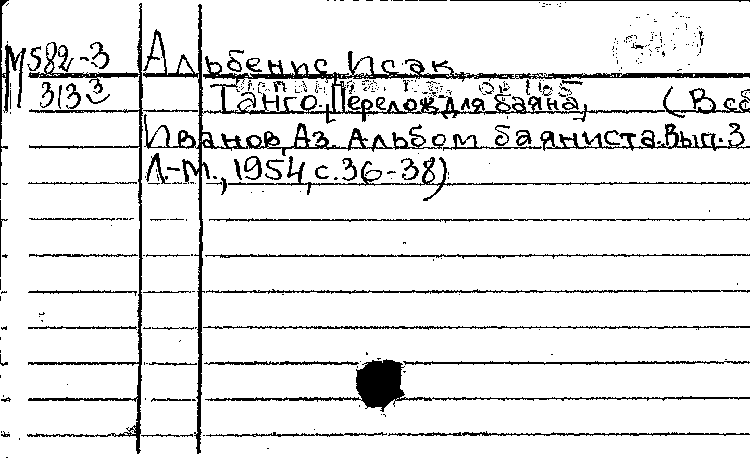 М 582-3 Альбенис, Исак.
313 3 Танго, Перелож. для баяна, (В сб
Иванов, Аз. Альбом баяниста. Вып. 3
Л.-М., 1954, с. 36-38)